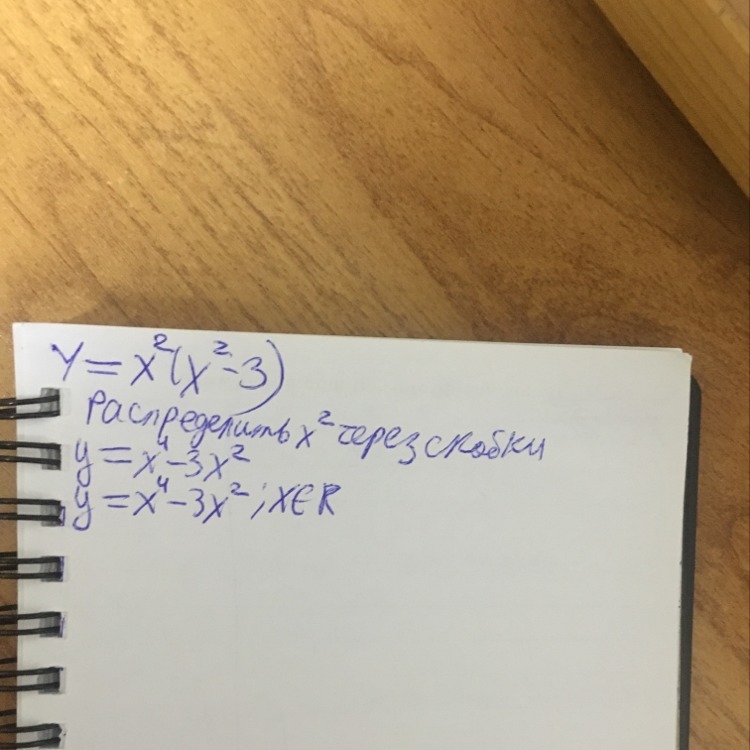 y=x²(x²-3)
распределить x² через скобки
y=x⁴-3x²
y=x⁴-3x²; x∈R